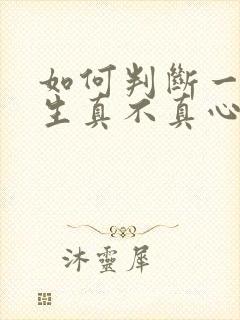 如何判斷一
生真不真心
沐靈犀